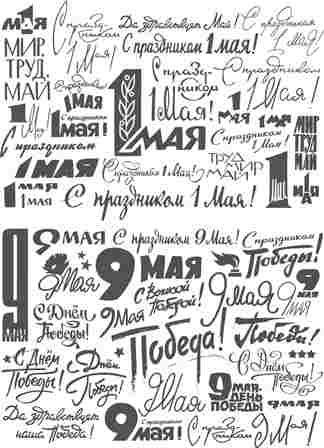 1 МАЯ
С праздником 1 Мая!
Да здравствует 1 Мая
С праздником 1 Мая!
МИР, ТРУД, МАЙ
С праздником 1 мая!
С праздником 1 Мая!
С праздником 1 Мая!
С праздником
1 МАЯ
1 МАЯ
1 Мая
С праздником 1 мая!
С праздником
1 Мая!
С праздником 1 Мая!
МИР ТРУД МАЙ
1 МАЯ
1 МАЯ
1 мая
С праздником 1 Мая!
ТРУД МИР МАЙ
1 мая
С праздником 1 Мая!
9 МАЯ
9 МАЯ
С праздником 9 Мая!
С праздником Победы!
9 Мая
9 МАЯ
С Великой Победой!
9 Мая
9 Мая
9 МАЯ
С Днём Победы!
9 Мая
Победа!
Победа!
С Днём Победы!
С Днём Победы!
С Днём Победы!
9 МАЯ-ДЕНЬ ПОБЕДЫ
Да здравствует наша Победа
9 МАЯ
9 Мая
С праздником 9 Мая!
С Днём Победы!